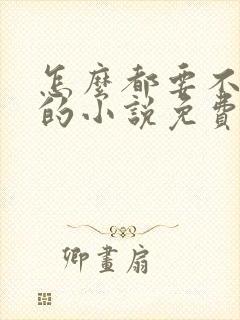 怎麼都要不
的小說免費
卿畫扇